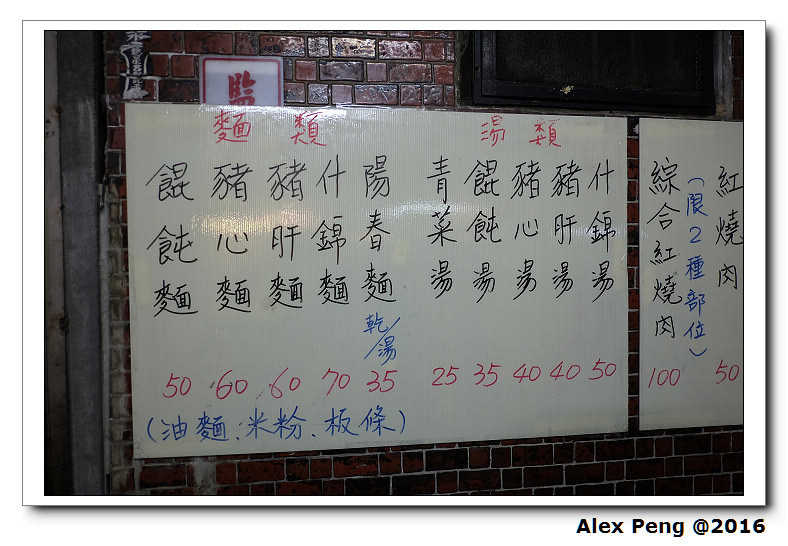 監
麵類
餛飩麵 50
豬心麵 60
豬肝麵 60
什錦麵 70
陽春麵 乾/湯 35
(油麵、米粉、板條)
湯類
青菜湯 25
餛飩湯 35
豬心湯 40
豬肝湯 40
什錦湯 50
綜合紅燒肉 100
(限2種部位)
紅燒肉 50
Alex Peng @2016